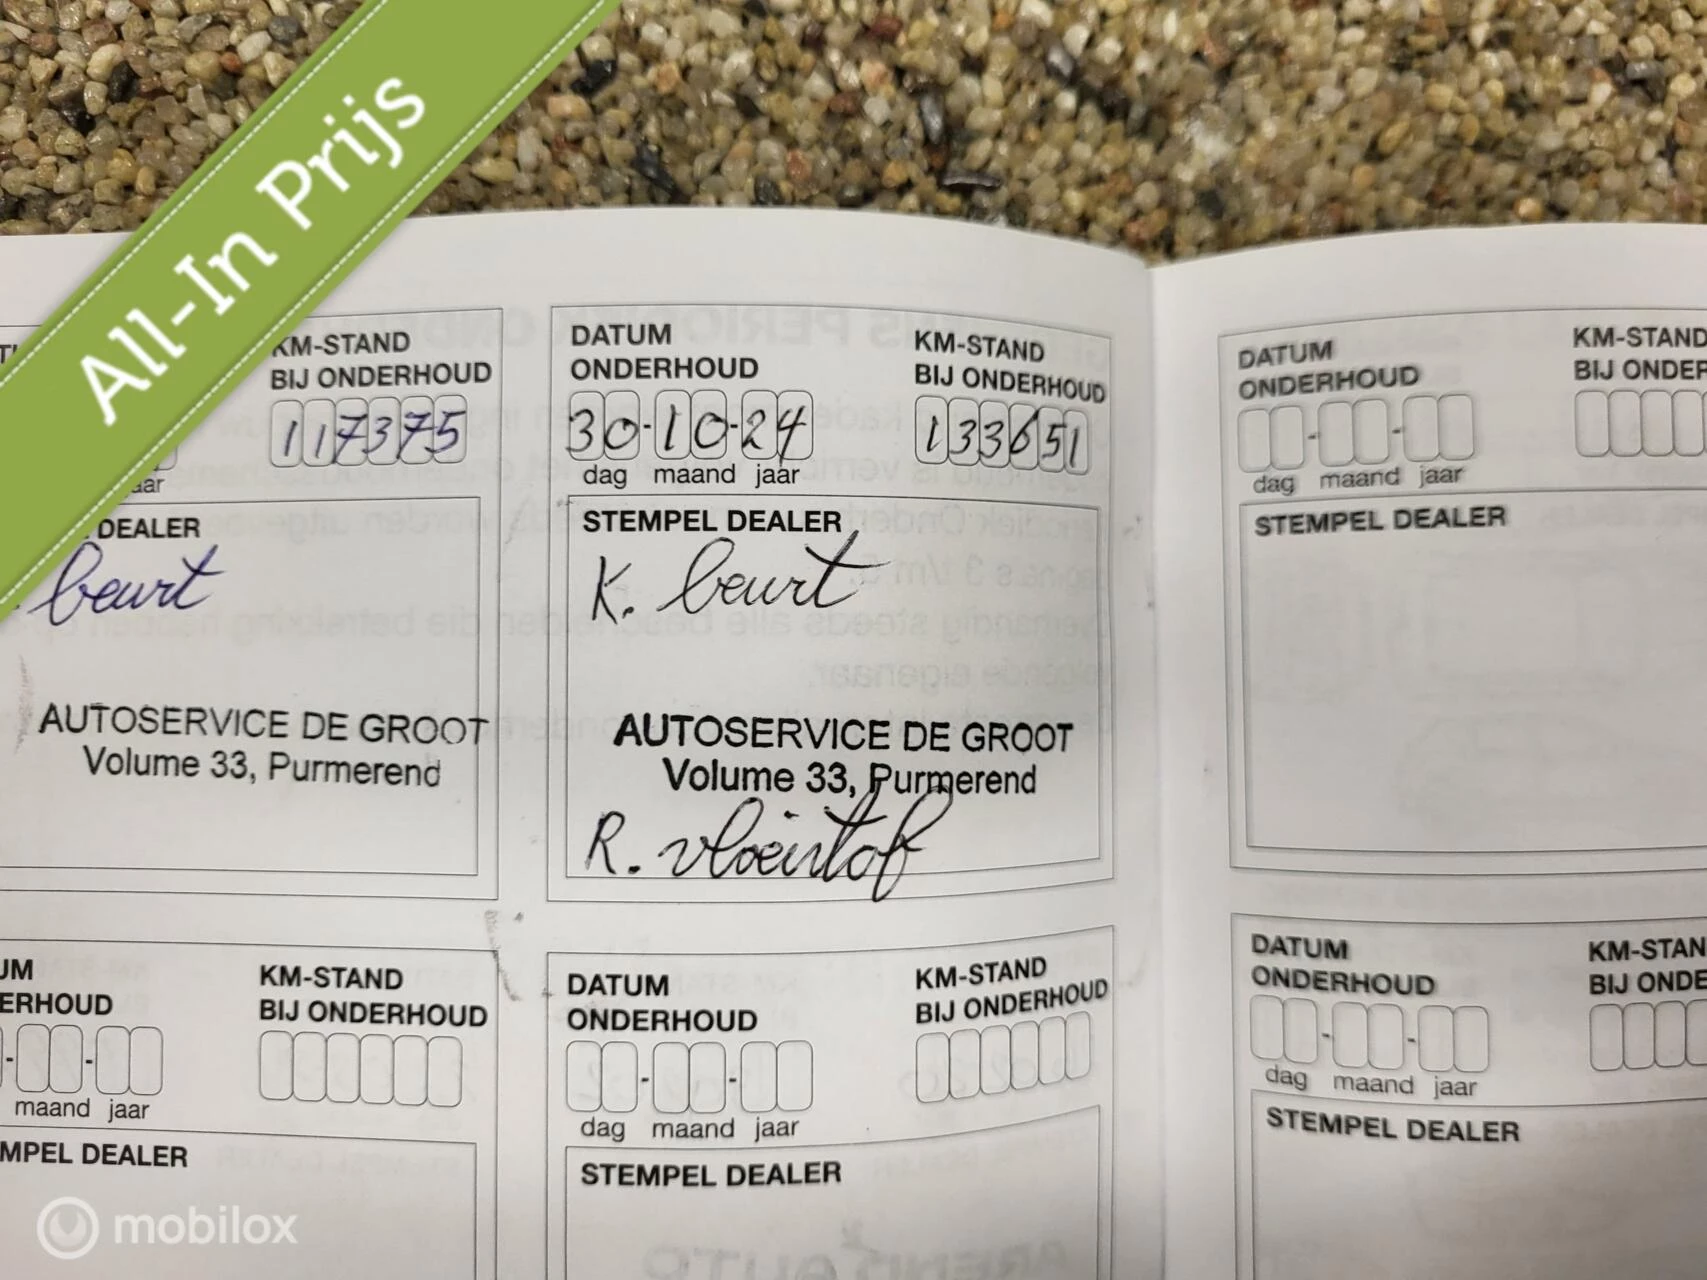 All-In Prijs
KM-STAND
BIJ ONDERHOUD
117375
DEALER
beurt
AUTOSERVICE DE GROOT
Volume 33, Purmerend
DATUM
ONDERHOUD
30-10-24
dag maand jaar
KM-STAND
BIJ ONDERHOUD
133651
STEMPEL DEALER
K. beurt
AUTOSERVICE DE GROOT
Volume 33, Purmerend
R. vloeistof
DATUM
ONDERHOUD
dag maand jaar
KM-STAND
BIJ ONDER
STEMPEL DEALER
UM
ERHOUD
maand jaar
KM-STAND
BIJ ONDERHOUD
MPEL DEALER
DATUM
ONDERHOUD
dag maand jaar
KM-STAND
BIJ ONDERHOUD
STEMPEL DEALER
DATUM
ONDERHOUD
dag maand jaar
KM-STAN
BIJ ONDE
STEMPEL DEALER
mobilox